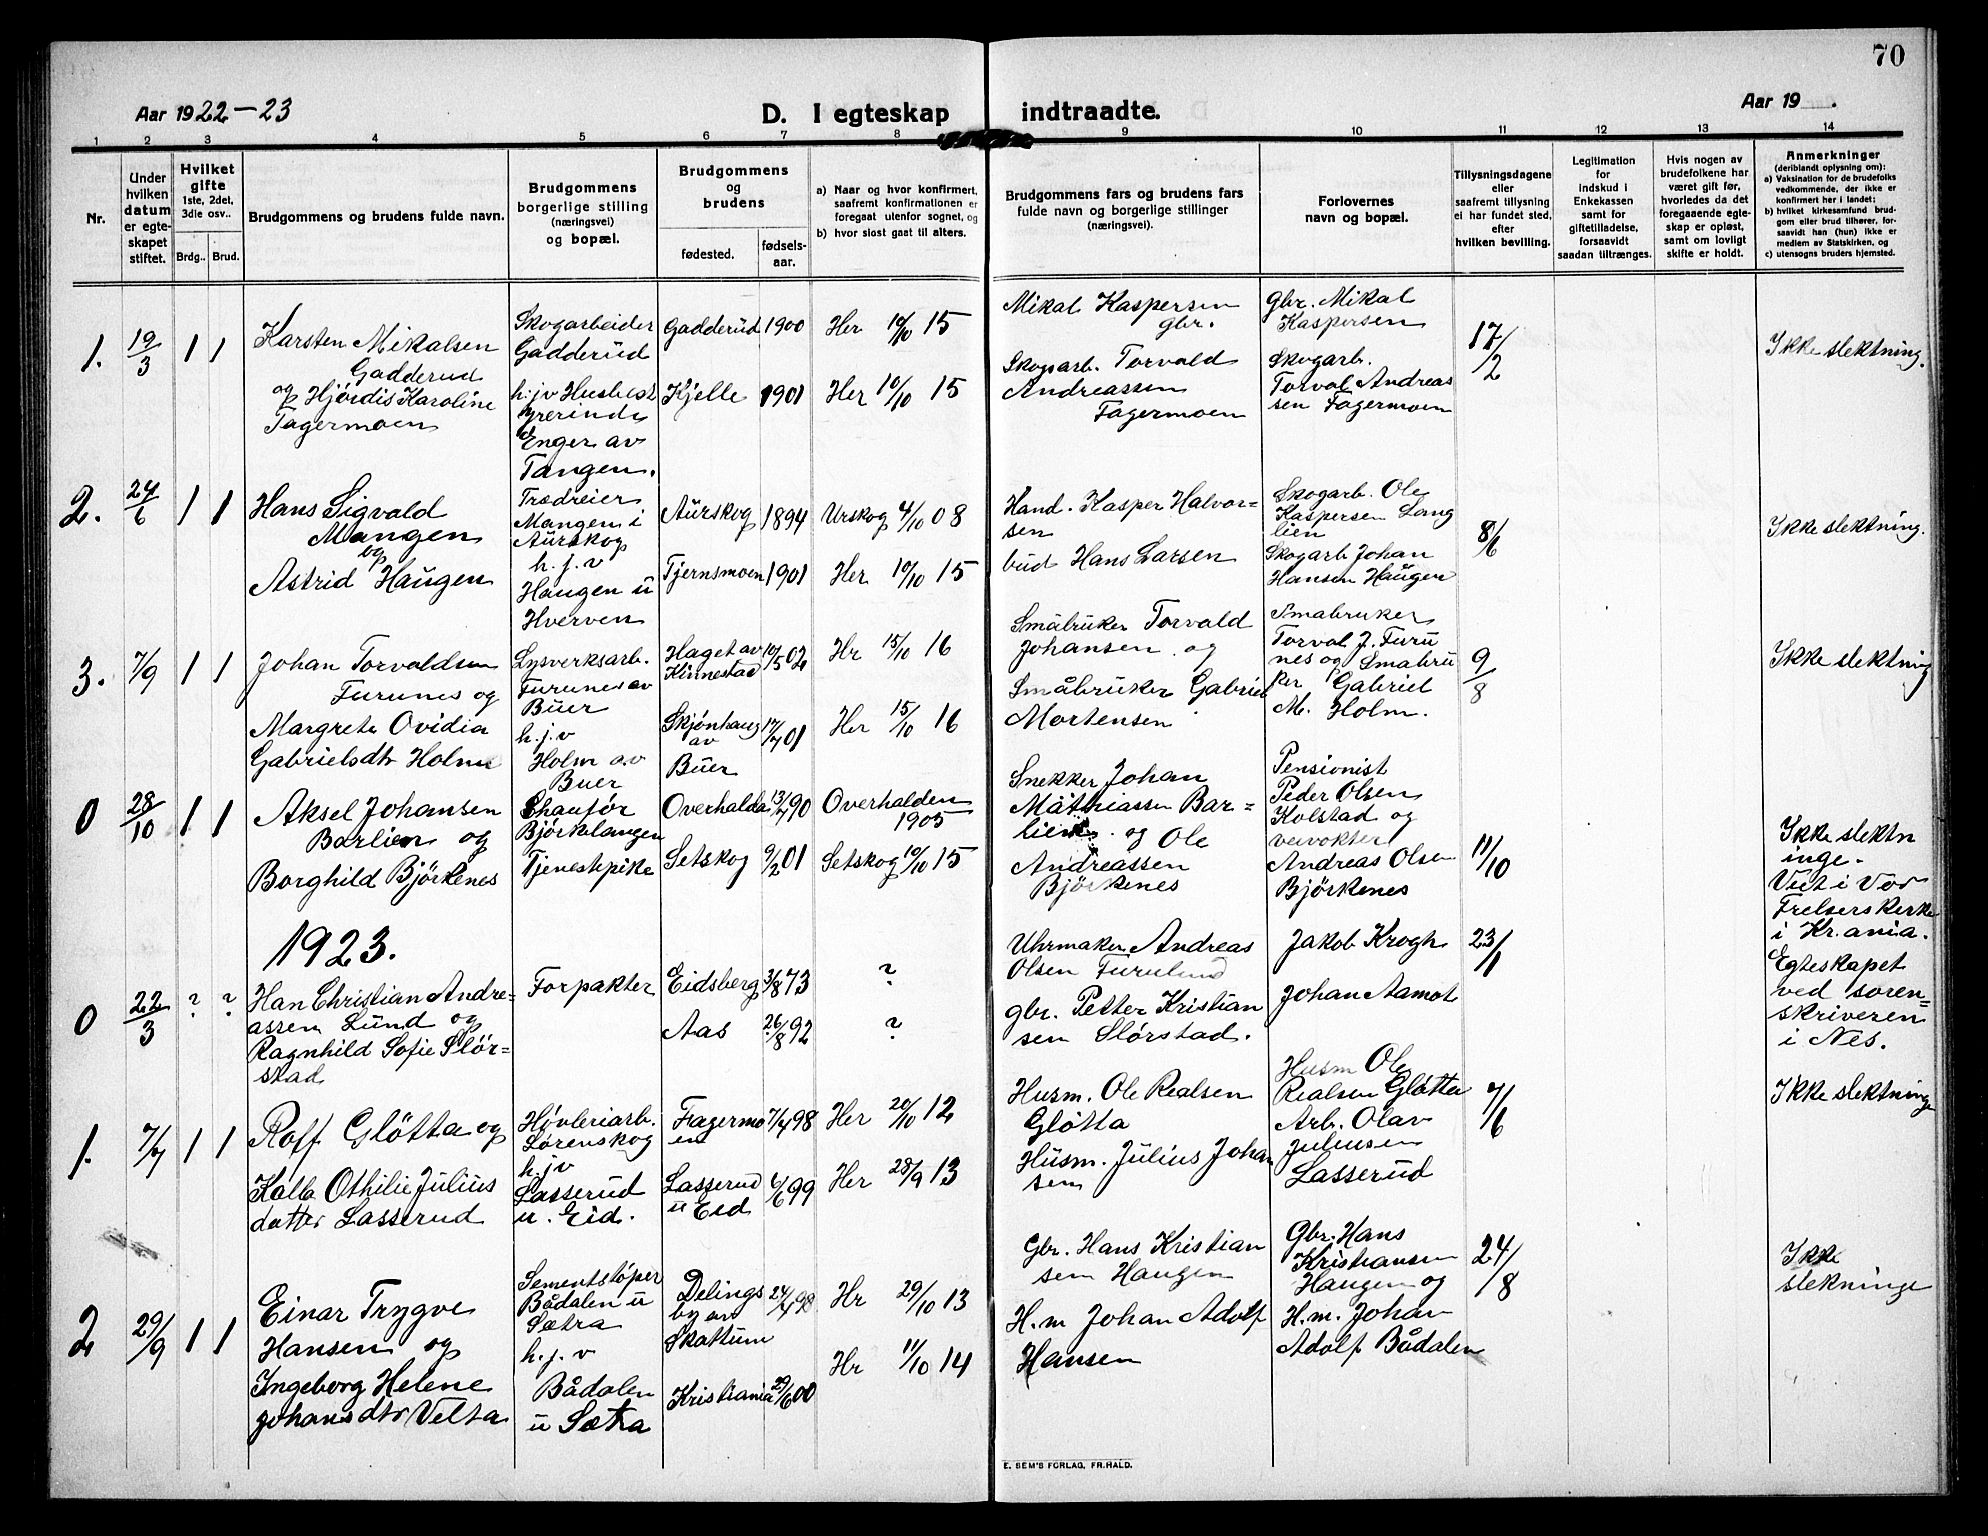 70
Aar 1922-23
D. I egteskap indtraadte.
Aar 19 .
1 2 3 4 5 6 7 8 9 10 11 12 13 14
Nr.
Under
hvilken
datum
er egte-
skapet
stiftet.
Hvilket
gifte
1ste, 2det,
3die osv..
Brdg.. Brud.
Brudgommens og brudens fulde navn.
Brudgommens
borgerlige stilling
(næringsvei)
og bopæl.
Brudgommens
og
brudens
fødested.
fødsels-
aar.
a) Naar og hvor konfirmert,
saafremt konfirmationen er
foregaat utenfor sognet, og
b) hvor sidst gaat til alters.
Brudgommens fars og brudens fars
fulde navn og borgerlige stillinger
(næringsvei).
Forlovernes
navn og bopæl.
Tillysningsdagene
eller
saafremt tillysning
ei har fundet sted,
efter
hvilken bevilling.
Legitimation
for
indskud i
Enkekassen
samt for
giftetilladelse,
forsaavidt
saadan tiltrænges.
Hvis nogen av
brudefolkene har
været gift før,
hvorledes da det
foregaaende egte-
skap er opløst,
samt om lovligt
skifte er holdt.
Anmerkninger
(deriblandt oplysning om):
a) Vaksination for de brudefolks
vedkommende, der ikke er
konfirmert her i landet;
b) hvilket kirkesamfund brud-
gom eller brud tilhører, for-
saavidt han (hun) ikke er
medlem av Statskirken, og
c) utensogns bruders hjemsted.
1. 19/3 1 1
Karsten Mikalsen
Gadderud
og Hjördis Karoline
Fagermoen
Skogarbeider
Gadderud
h.jv Husbest
yrerinde
Enger av
Tangen.
Gadderud 1900 Her 10/10 15
Kjelle 1901 Her 10/10 15
Mikal Kaspersen
gbr.
Skogarb. Torvald
Andreassen
Fagermoen
Gbr. Mikal
Kaspersen
Skogarb.
Torval Andreas
sen Fagermoen
17/2
Ikke slektning.
2. 24/6 1 1
Hans Sigvald
Mangen
og
Astrid Haugen
Trædreier
Mangen i
Aurskog
h. j. v
Haugen u
Hverven
Aurskog 1894 Urskog 4/10 08
Tjernsmoen 1901 Her 10/10 15
Hand. Kasper Halvor-
sen
bud Hans Larsen
Skogarb. Ole
Kaspersen Lang
lien
Skogarb Johan
Hansen Haugen
8/6
Ikke slektning.
3. 7/9 1 1
Johan Torvaldsen
Furunes og
Margrete Ovidia
Gabrielsdtr Holm
Lysverksarb.
Furunes av
Buer
h.j.v
Holm av
Buer
Haget av
Kinnestad
10/5 02 Hr 15/10 16
Skjönhaug
av
Buer
17/7 01 Her 15/10 16
Småbruker Torvald
Johansen og
Småbruker Gabriel
Mortensen
Smabruker
Torval J. Furu
nes og Smabru
ker Gabriel
M. Holm.
9/8
Ikke slektning
0 28/10 1 1
Aksel Johansen
Barlien og
Borghild Björkenes
Chauför
Björkelangen
Tjenestepike
Overhalda 13/7 90 Overhalden
1905
Setskog 9/2 01 Setskog 10/10 15
Snekker Johan
Mathiassen Bar=
lien og Ole
Andreassen
Björkenes
Pensionist
Peder Olsen
Kolstad og
Andreas Olsen
Björkenes
11/10
Ikke slektn
inge.
Viet i Vor
Frelserskirke
i Kr.ania.
1923.
0 22/3 ? ?
Han Christian Andre=
assen Lund og
Ragnhild Sofie Slör=
stad
Forpakter
Eidsberg 3/8 73 ?
Aas 26/8 92 ?
Uhrmaker Andreas
Olsen Furulund
gbr. Petter Kristian
sen Slörstad.
Jakob Krogh
Johan Aamot
23/1
Egteskapet
ved soren=
skriveren
i Nes.
1. 7/7 1 1
Rolf Glötta og
Kalla Othilie Julius
datter Lasserud
Høvleriarb.
Lørenskog
h.jv
Lasserud
u. Eid.
Fagermo
en
7/4 98 Her 20/10 12
Lasserud
u Eid
4/6 99 Her 28/9 13
Husm. Ole Realsen
Glötta
Husm. Julius Johan
sen
Husm Ole
Realsen Glötta
Arb. Olav
Juliussen
Lasserud
7/6
Ikke slektninge
2 29/9 1 1
Einar Trygve
Hansen og
Ingeborg Helene
Johansdtr Velta
Sementstöper
Bådalen u
Sætra
h. j. v
Bådalen
u Sætra
Delings
by av
Skattum
24/4 98 Hr 29/10 13
Kristiania 29/6 00 Hr 11/10 14
Gbr. Hans Kristian
sen Haugen
H.m Johan Adolf
Hansen
Gbr. Hans
Kristiansen
Haugen og
H.m. Johan
Adolf Bådalen
24/8
Ikke
slekninge
E. SEM'S FORLAG, FR.HALD.